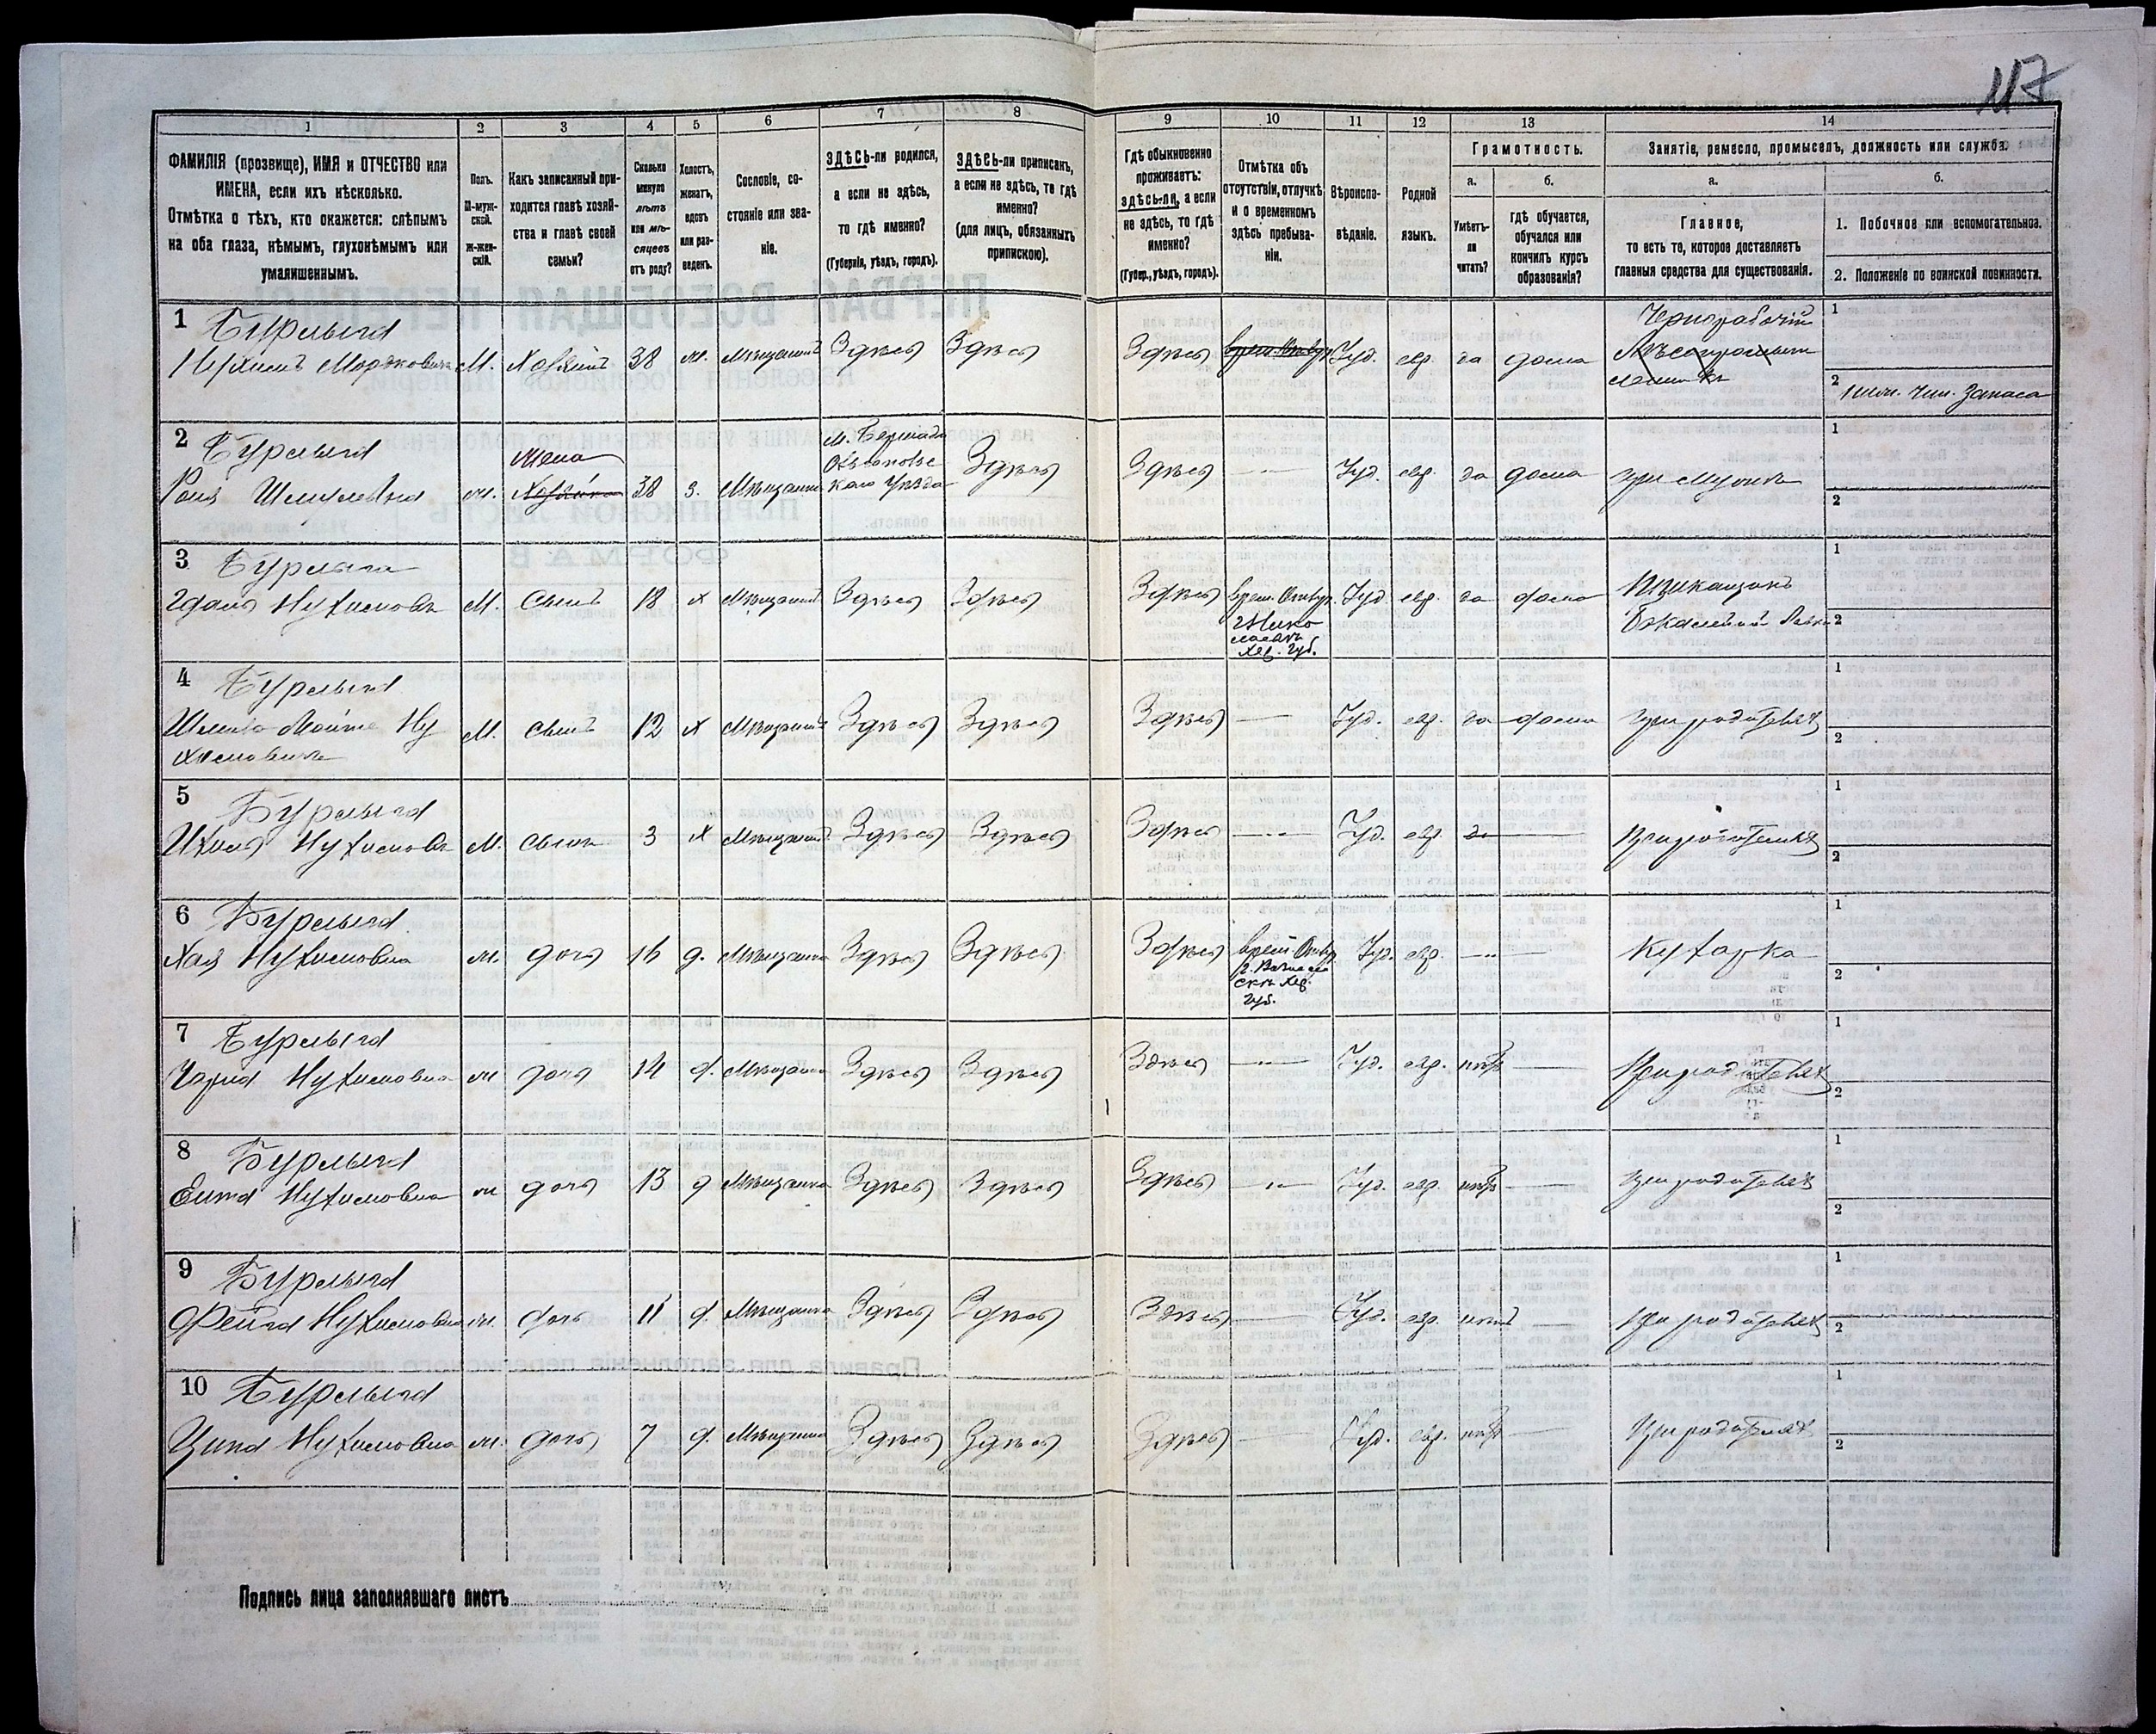 117
1 2 3 4 5 6 7 8 9 10 11 12 13 14
ФАМИЛІЯ (прозвище), ИМЯ и ОТЧЕСТВО или
ИМЕНА, если ихъ нѣсколько.
Отмѣтка о тѣхъ, кто окажется: слѣпымъ
на оба глаза, нѣмымъ, глухонѣмымъ или
умалишеннымъ.
Полъ.
М-муж-
ской.
Ж-жен-
скій.
Какъ записанный при-
ходится главѣ хозяй-
ства и главѣ своей
семьи?
Сколько
минуло
лѣтъ
или мѣ-
сяцевъ
отъ роду?
Холостъ,
женатъ,
вдовъ
или раз-
веденъ.
Сословіе, со-
стояніе или зва-
ніе.
ЗДѢСЬ-ли родился,
а если не здѣсь,
то гдѣ именно?
(Губернія, уѣздъ, городъ).
ЗДѢСЬ-ли приписанъ,
а если не здѣсь, то гдѣ
именно?
(для лицъ, обязанныхъ
припискою).
Гдѣ обыкновенно
проживаетъ:
здѣсь-ли, а если
не здѣсь, то гдѣ
именно?
(Губер., уѣздъ, городъ).
Отмѣтка объ
отсутствіи, отлучкѣ
и о временномъ
здѣсь пребыва-
ніи.
Вѣроиспо-
вѣданіе.
Родной
языкъ.
Грамотность.
а.
Умѣетъ-
ли
читать?
б.
гдѣ обучается,
обучался или
кончилъ курсъ
образованія?
Занятіе, ремесло, промыселъ, должность или служба.
а.
Главное,
то есть то, которое доставляетъ
главныя средства для существованія.
б.
1. Побочное или вспомогательное.
2. Положеніе по воинской повинности.
1 Бурлыга Чернорабочій 1
Нухимъ Мордковичъ М. Хозяинъ 38 ж. Мѣщанинъ Здѣсь Здѣсь Здѣсь Іуд. евр. да дома
2 Ниж. Чин. Запаса
2 Бурлыга жена м. Бершадь 1
Роия ж. Хозяйка 38 з. Мѣщанка каго Уѣзда Здѣсь Здѣсь — Іуд. евр. да дома при мужѣ 2
3 Бурлыга 1
Нухимовъ М. сынъ 18 х Мѣщанинъ Здѣсь Здѣсь Здѣсь врем. Отлуч. Іуд. евр. да дома Прикащикъ
г. Нико
лаевъ
Хер. Губ.
Бакалейной Лавки 2
4 Бурлыга 1
Ну М. сынъ 12 х Мѣщанинъ Здѣсь Здѣсь Здѣсь — Іуд. евр. да дома при родителяхъ 2
химовичъ
5 Бурлыга 1
Нухимовъ М. сынъ 3 х Мѣщанинъ Здѣсь Здѣсь Здѣсь — Іуд. евр. — При родителяхъ 2
6 Бурлыга 1
Хая Нухимовна ж. дочь 16 д. Мѣщанка Здѣсь Здѣсь Здѣсь врем. Отлуч. Іуд. евр. — Кухарка 2
скъ Хер.
Губ.
7 Бурлыга 1
Чарна Нухимовна ж дочь 14 д. Мѣщанка Здѣсь Здѣсь Здѣсь — Іуд. евр. нѣтъ — При родителяхъ 2
8 Бурлыга 1
Ента Нухимовна ж дочь 13 д Мѣщанка Здѣсь Здѣсь Здѣсь — Іуд. евр. нѣтъ — при родителяхъ 2
9 Бурлыга 1
Фейга Нухимовна ж. дочь 11 д. Мѣщанка Здѣсь Здѣсь Здѣсь — Іуд. евр. нѣтъ — При родителяхъ 2
10 Бурлыга 1
Ципа Нухимовна ж. дочь 7 д. Мѣщанка Здѣсь Здѣсь Здѣсь — Іуд. евр. нѣтъ — При родителяхъ 2
Подпись лица заполнявшаго листъ